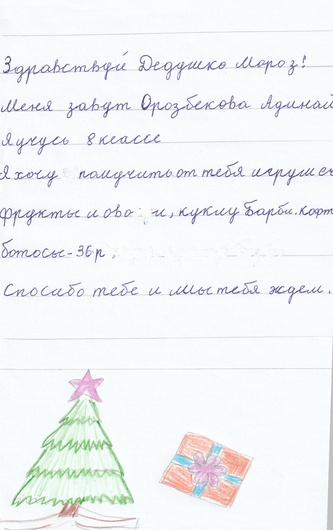 Здравствуй Дедушко Мороз!
Меня завут Орозбекова Адинай
Я учусь 8 классе
Я хочу палучить от тебя игрушс
фрукты и ово и, куклу Барби. кофт
ботосы-36р,
Спосибо тебе и мы тебя ждем.